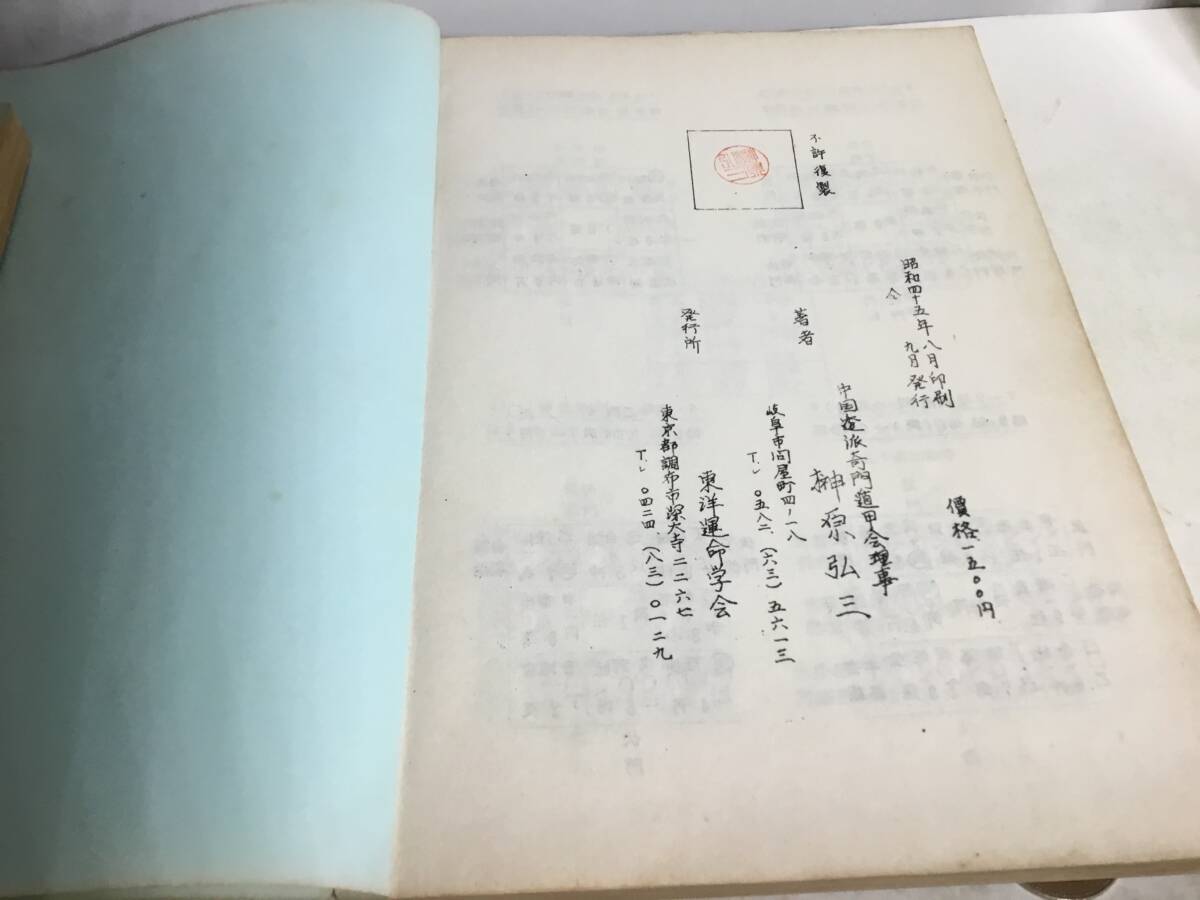 不許復製
昭和四十五年八月印刷
仝　九月発行
價格一五〇〇円
著者
中国遁派奇門遁甲会理事
榊原弘三
岐阜市問屋町四ノ一八
TEL 〇五八二（六三）五六一三
発行所
東洋運命学会
東京都調布市深大寺二二六七
TEL 〇四二四（八三）〇一二九